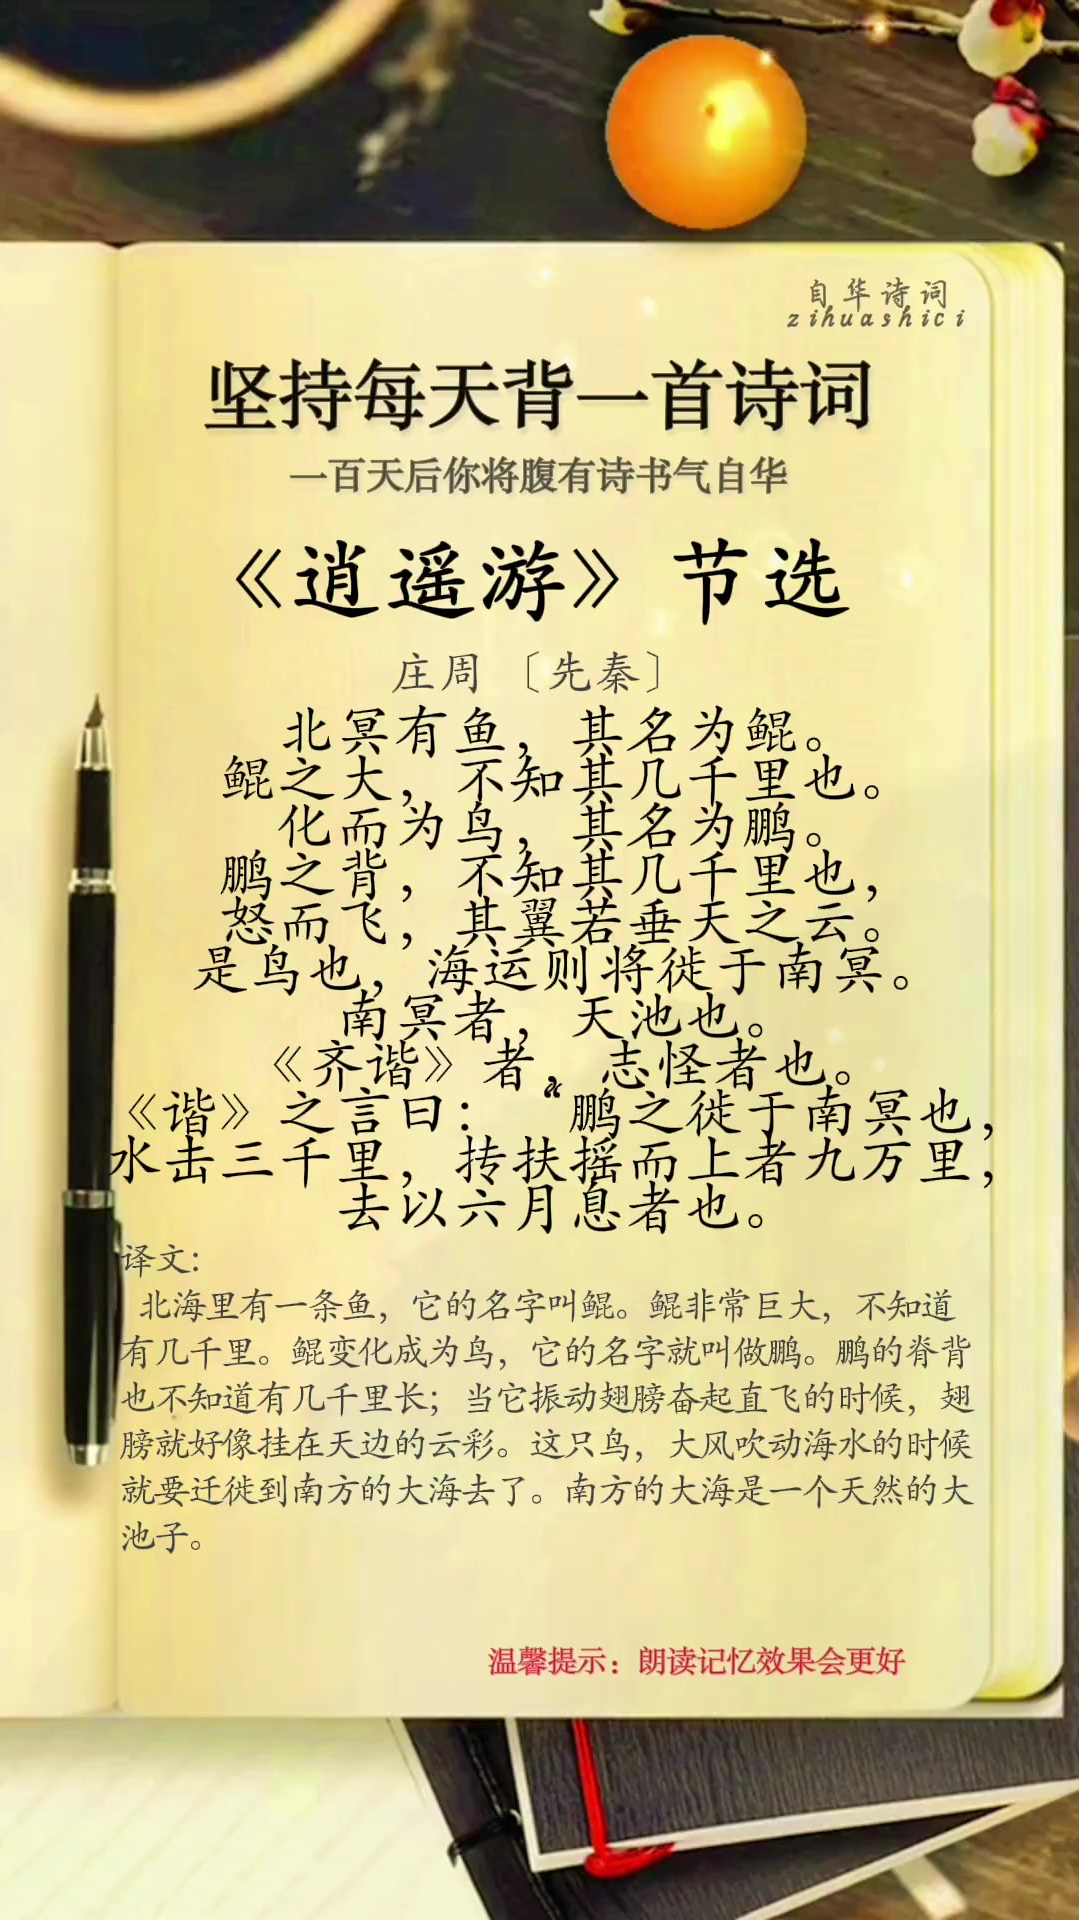 自华诗词
zihuashici
坚持每天背一首诗词
一百天后你将腹有诗书气自华
《逍遥游》节选
庄周〔先秦〕
北冥有鱼，其名为鲲。
鲲之大，不知其几千里也。
化而为鸟，其名为鹏。
鹏之背，不知其几千里也，
怒而飞，其翼若垂天之云。
是鸟也，海运则将徙于南冥。
南冥者，天池也。
《齐谐》者，志怪者也。
《谐》之言曰：“鹏之徙于南冥也，
水击三千里，抟扶摇而上者九万里，
去以六月息者也。
译文：
北海里有一条鱼，它的名字叫鲲。鲲非常巨大，不知道
有几千里。鲲变化成为鸟，它的名字就叫做鹏。鹏的脊背
也不知道有几千里长；当它振动翅膀奋起直飞的时候，翅
膀就好像挂在天边的云彩。这只鸟，大风吹动海水的时候
就要迁徙到南方的大海去了。南方的大海是一个天然的大
池子。
温馨提示：朗读记忆效果会更好